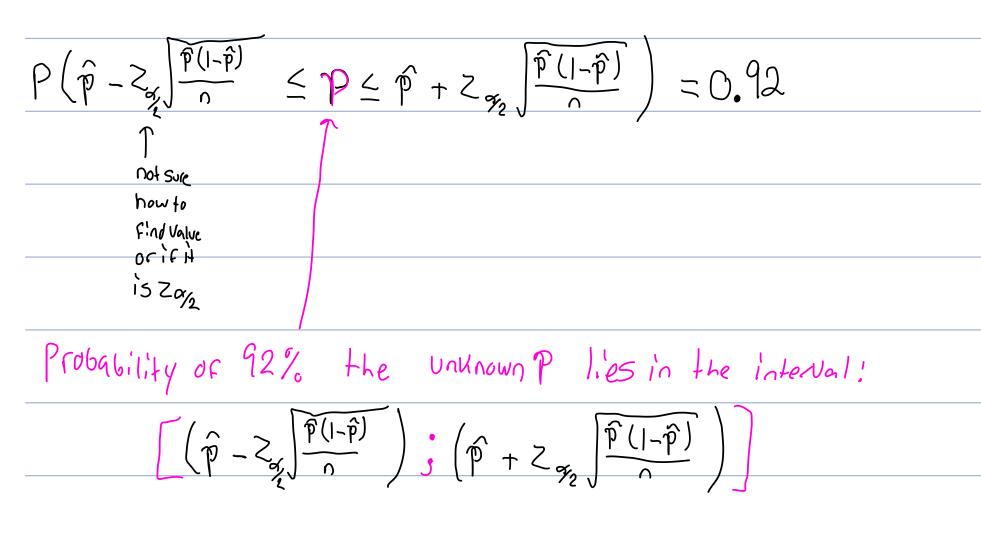 P(p̂ - Z_α/2 √(p̂(1-p̂)/n) ≤ p ≤ p̂ + Z_α/2 √(p̂(1-p̂)/n)) = 0.92
↑
not sure
how to
find value
or if it
is Zα/2
Probability of 92% the unknown P lies in the interval:
[(p̂ - Z_α/2 √(p̂(1-p̂)/n)) ; (p̂ + Z_α/2 √(p̂(1-p̂)/n))]